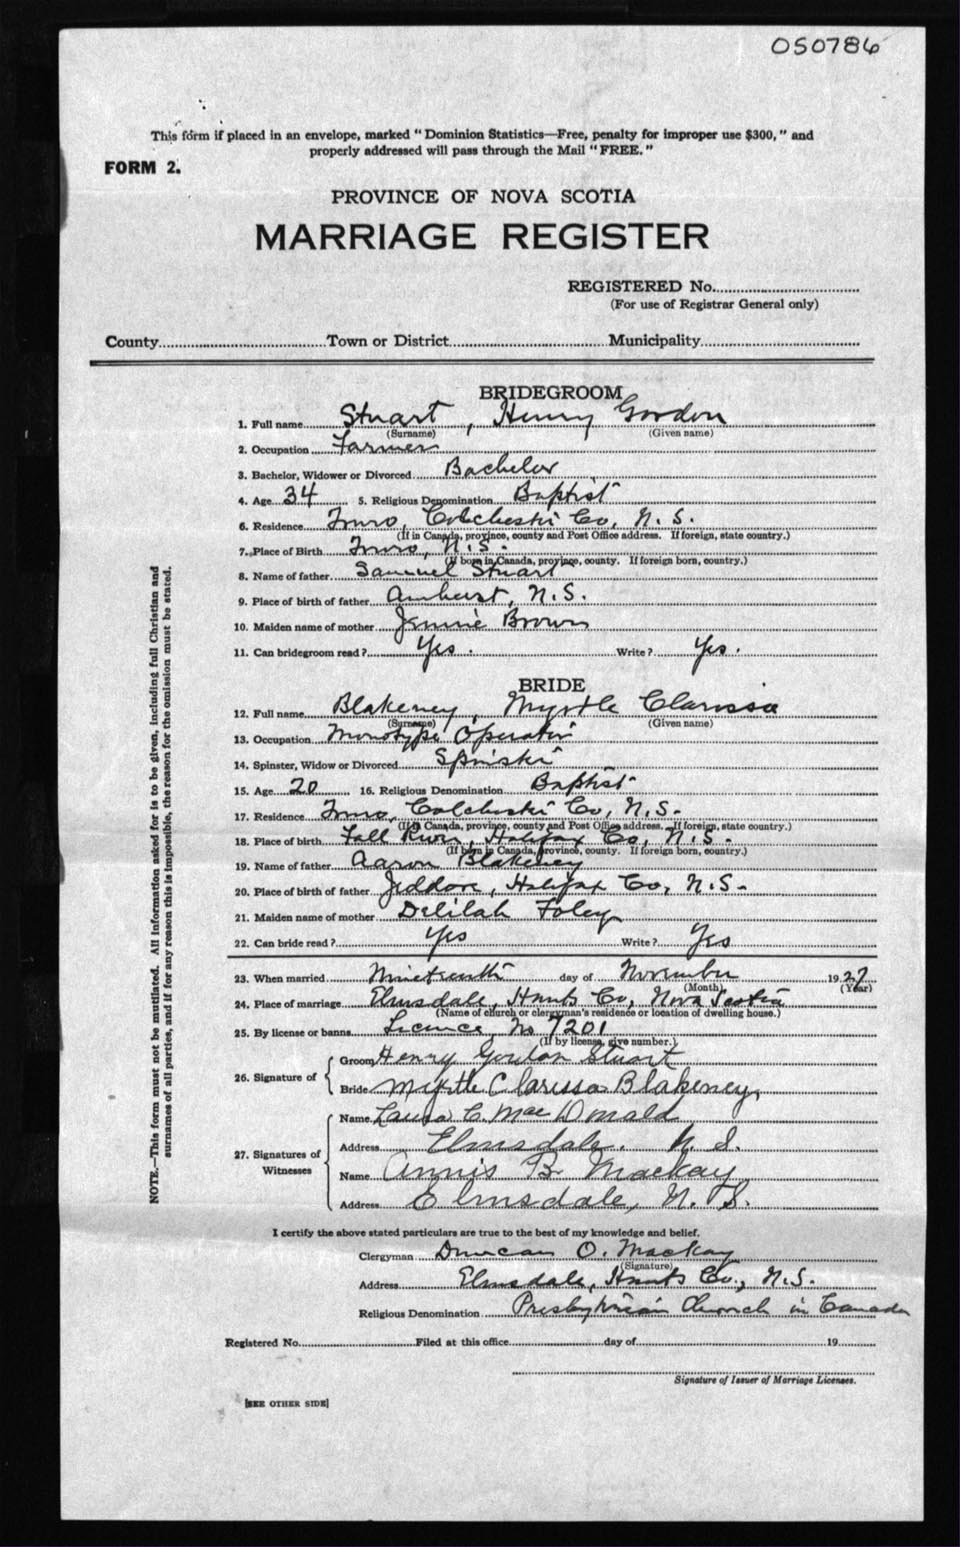 050786
This form if placed in an envelope, marked "Dominion Statistics—Free, penalty for improper use $300," and
properly addressed will pass through the Mail "FREE."
FORM 2.
PROVINCE OF NOVA SCOTIA
MARRIAGE REGISTER
REGISTERED No.
(For use of Registrar General only)
County Town or District Municipality
BRIDEGROOM
1. Full name Stuart, Henry Gordon
(Surname) (Given name)
2. Occupation Farmer
3. Bachelor, Widower or Divorced Bachelor
4. Age 34 5. Religious Denomination Baptist
6. Residence Truro, Colchester Co, N.S.
(If in Canada, province, county and Post Office address. If foreign, state country.)
7. Place of Birth Truro, N.S.
(If born in Canada, province, county. If foreign born, country.)
8. Name of father Samuel Stuart
9. Place of birth of father Amherst, N.S.
10. Maiden name of mother Jennie Brown
11. Can bridegroom read? Yes. Write? Yes.
BRIDE
12. Full name Blakeney, Myrtle Clarissa
(Surname) (Given name)
13. Occupation Monotype Operator
14. Spinster, Widow or Divorced Spinster
15. Age 20 16. Religious Denomination Baptist
17. Residence Truro, Colchester Co, N.S.
(If in Canada, province, county and Post Office address. If foreign, state country.)
18. Place of birth Fall River, Halifax Co, N.S.
(If born in Canada, province, county. If foreign born, country.)
19. Name of father Aaron Blakeney
20. Place of birth of father Jeddore, Halifax Co, N.S.
21. Maiden name of mother Delilah Foley
22. Can bride read? Yes Write? Yes
23. When married Nineteenth day of November 1927
(Month) (Year)
24. Place of marriage Elmsdale, Hants Co, Nova Scotia
(Name of church or clergyman's residence or location of dwelling house.)
25. By license or banns Licence, No 7201
(If by license, give number.)
26. Signature of Groom Henry Gordon Stuart
Bride Myrtle Clarissa Blakeney
27. Signatures of Witnesses Name Laura C. MacDonald
Address Elmsdale. N.S.
Name Annis B. Mackay
Address Elmsdale, N.S.
I certify the above stated particulars are true to the best of my knowledge and belief.
Clergyman Duncan O. Mackay
(Signature)
Address Elmsdale, Hants Co., N.S.
Religious Denomination Presbyterian Church in Canada
Registered No. Filed at this office day of 19
Signature of Issuer of Marriage Licenses.
[SEE OTHER SIDE]
NOTE.—This form must not be mutilated. All information asked for is to be given, including full Christian and
surnames of all parties, and if for any reason this is impossible, the reason for the omission must be stated.